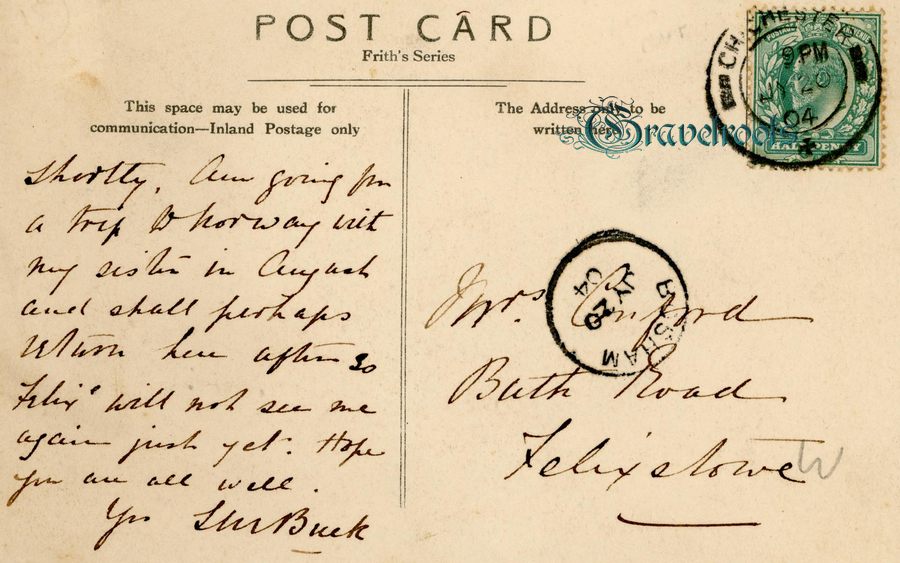 POST CARD
Frith's Series
This space may be used for
communication—Inland Postage only
The Address only to be
written here
Gravelroots
CHICHESTER
9 PM
JY 20
04
POSTAGE
HALF PENNY
Shortly. Am going for
a trip to Norway with
my sister in August
and shall perhaps
return here after so
Felixe will not see me
again just yet. Hope
you are all well.
Yrs Buck
BOSHAM
JY 20
04
Mrs
Bath Road
Felixstowe
W